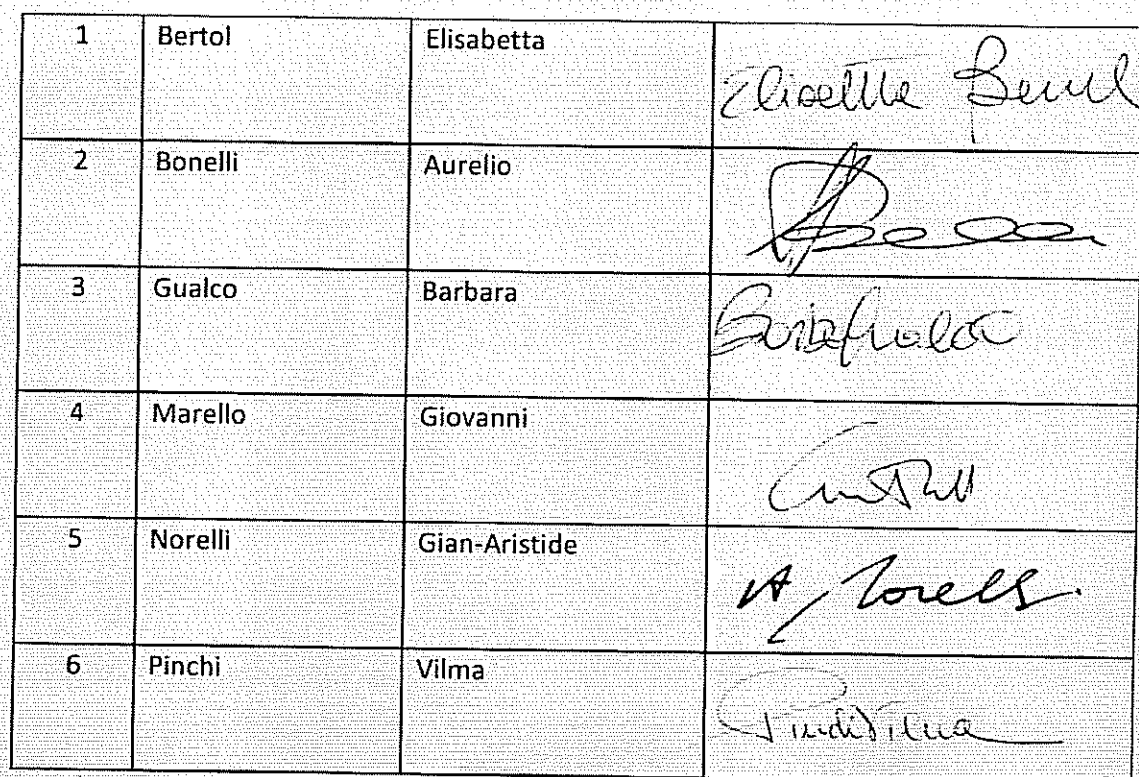 1 Bertol Elisabetta Elisabetta Bertol
2 Bonelli Aurelio
3 Gualco Barbara
4 Marello Giovanni
5 Norelli Gian-Aristide A. Norelli
6 Pinchi Vilma Pinchi Vilma